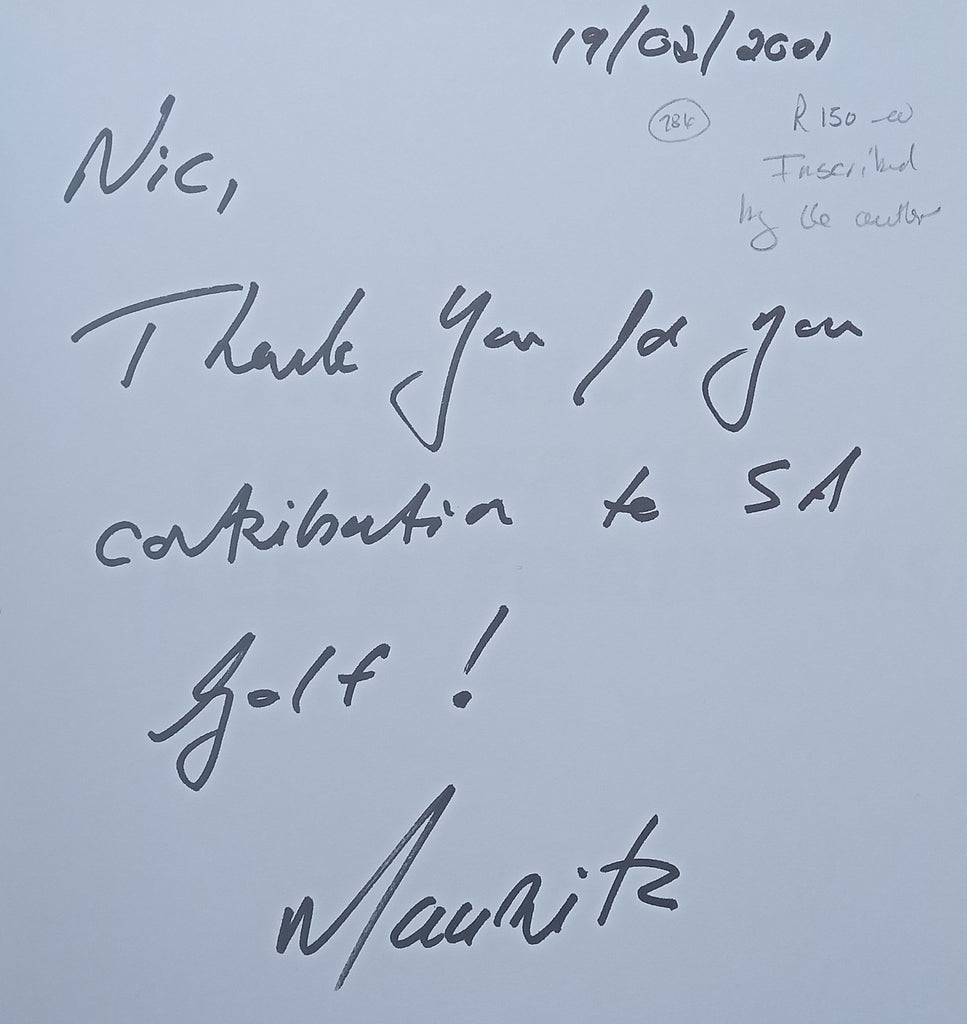 19/02/2001
R150-00
Inscribed
by the author
Nic,
Thank you for your
contribution to SA
golf!
Mauritz